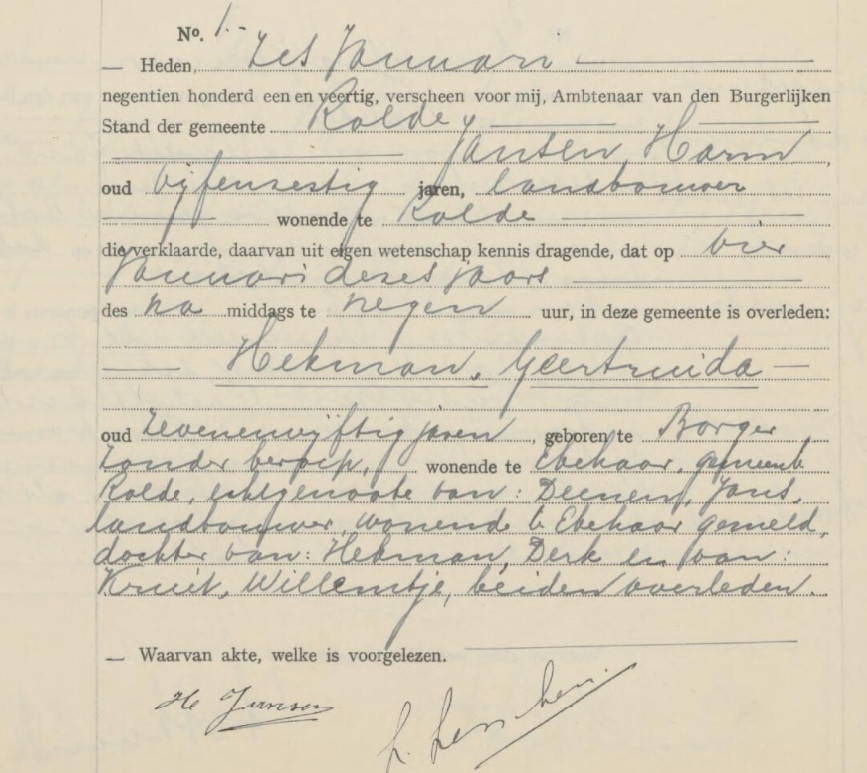 No. 1.-
— Heden, zes Januari
negentien honderd een en veertig, verscheen voor mij, Ambtenaar van den Burgerlijken
Stand der gemeente Rolde,
Jansen, Harm,
oud vijfenzestig jaren, landbouwer
wonende te Rolde
die verklaarde, daarvan uit eigen wetenschap kennis dragende, dat op vier
Januari dezes jaars
des na middags te negen uur, in deze gemeente is overleden:
— Hekman, Geertruida —
oud zevenenvijftig jaren, geboren te Borger,
zonder beroep, wonende te Ekehaar, gemeente
Rolde, echtgenoote van: Deenen, Jans,
landbouwer, wonende te Ekehaar gemeld,
dochter van: Hekman, Derk en van:
Kruit, Willemtje, beiden overleden.
— Waarvan akte, welke is voorgelezen.
H Jansen